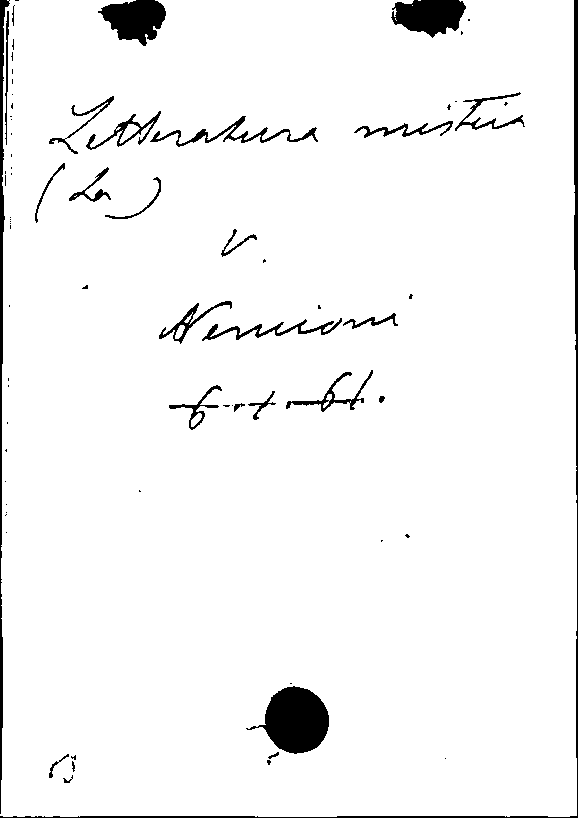 Letteratura mistica
(La)
V.
Nencioni
6.1.61.